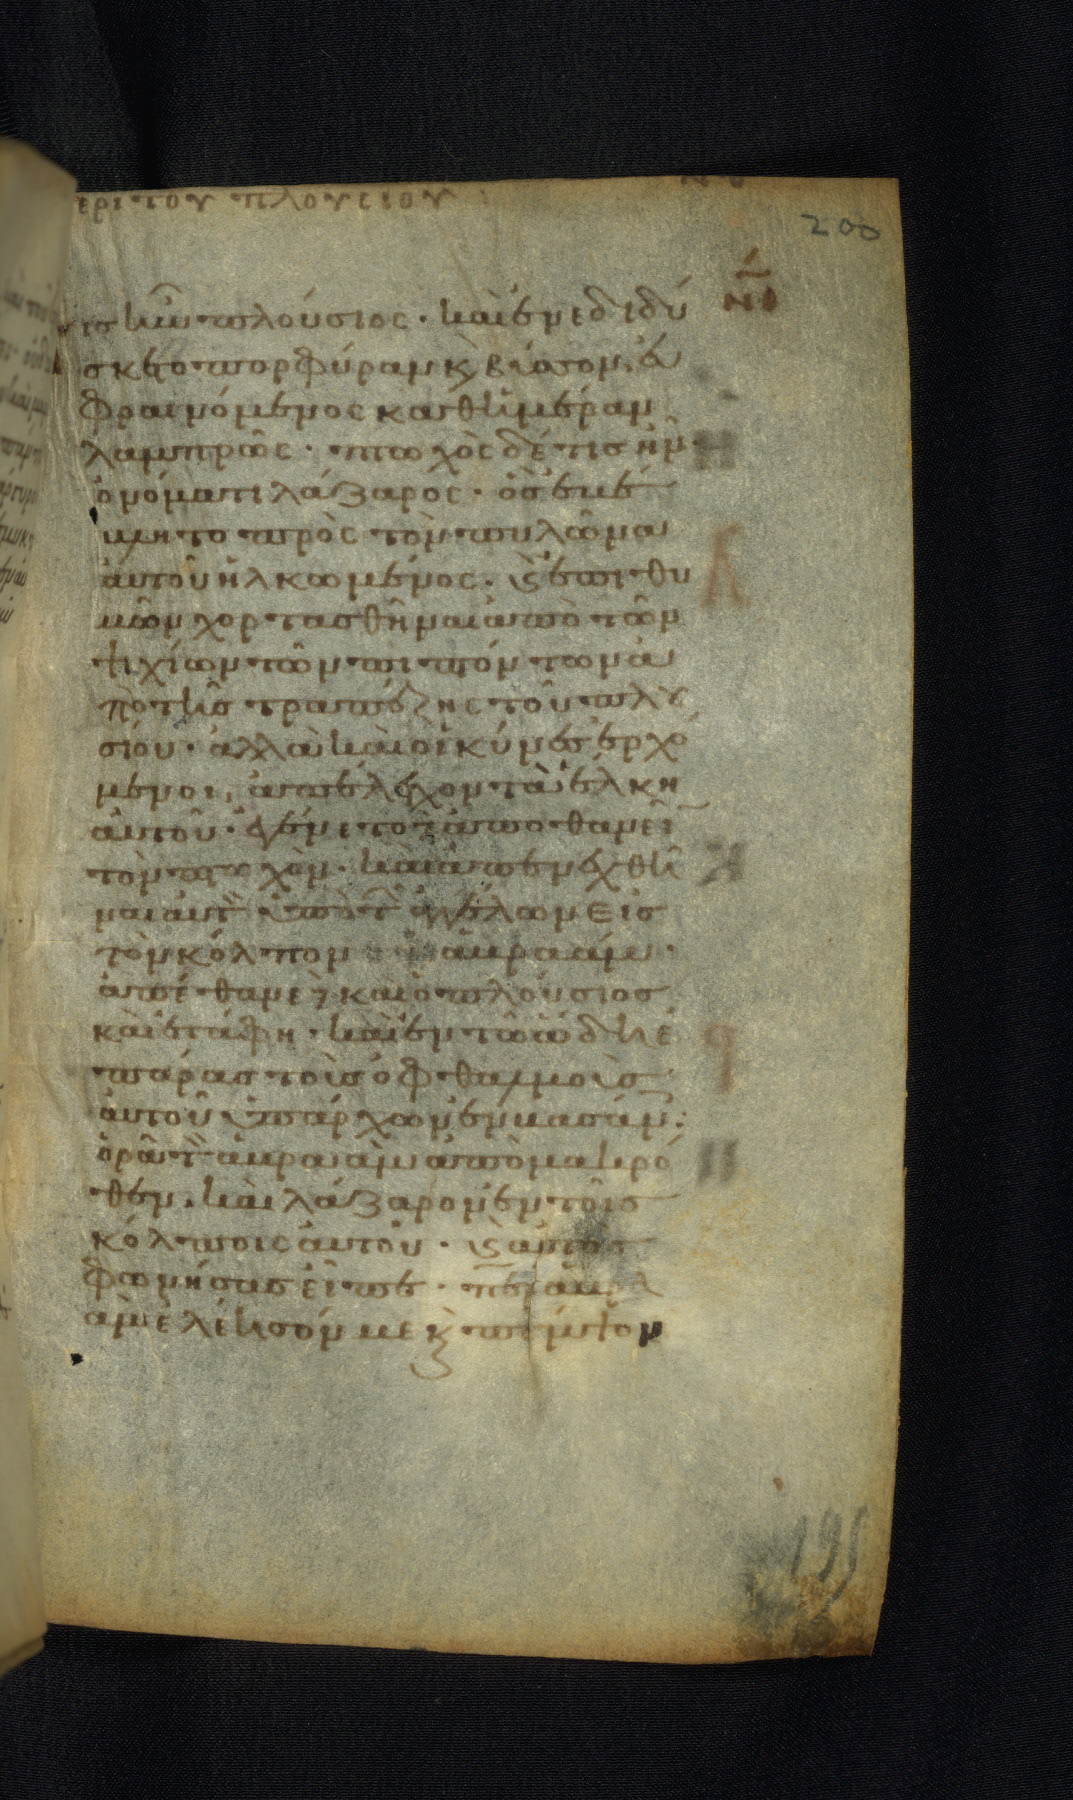 ερι του πλουσιου
200
νδ
ις ἦν πλούσιος · καὶ ἐνεδιδύ
σκετο πορφύραν κ βύσσον ἐυ
φραινόμενος καθ ἡμέραν
λαμπρῶς · πτωχὸς δέ τις ἦν
ὀνόματι λάζαρος · ὃς ἐβέ
βλητο πρὸς τὸν πυλῶνα
ἀυτοῦ ἡλκωμένος · κ ἐπιθυ
μῶν χορτασθῆναι ἀπὸ τῶν
ψιχίων τῶν πιπτόντων ἀ
πὸ τῆς τραπέζης τοῦ πλου
σίου · ἀλλὰ καὶ οἱ κύνες ἐρχό
μενοι, ἀπέλειχον τὰ ἕλκη
ἀυτοῦ · ἐγένετο δὲ ἀποθανεῖ
τὸν πτωχὸν · καὶ ἀπενεχθῆ
ναι ἀυτὸν ὑπὸ τῶν ἀγγέλων εἰς
τὸν κόλπον ἀβραάμ ·
ἀπέθανε δὲ καὶ ὁ πλούσιος
καὶ ἐτάφη · καὶ ἐν τῶ ἅδη ἐ
πάρας τοὺς ὀφθαλμοὺς
ἀυτοῦ ὑπάρχων ἐν βασάν
ὁρᾶ τὸν ἀβραὰμ ἀπὸ μακρό
θεν, καὶ λάζαρον ἐν τοῖς
κόλποις ἀυτοῦ · κ ἀυτὸς
φωνήσας εἶπε · περ ἀβρα
ὰμ ἐλέησόν με κ πέμψον
195